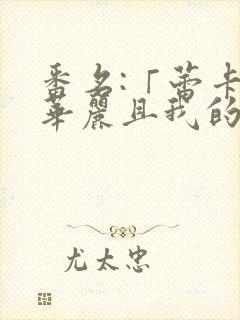 番名:「蕾卡
華麗且我的
尤太忠